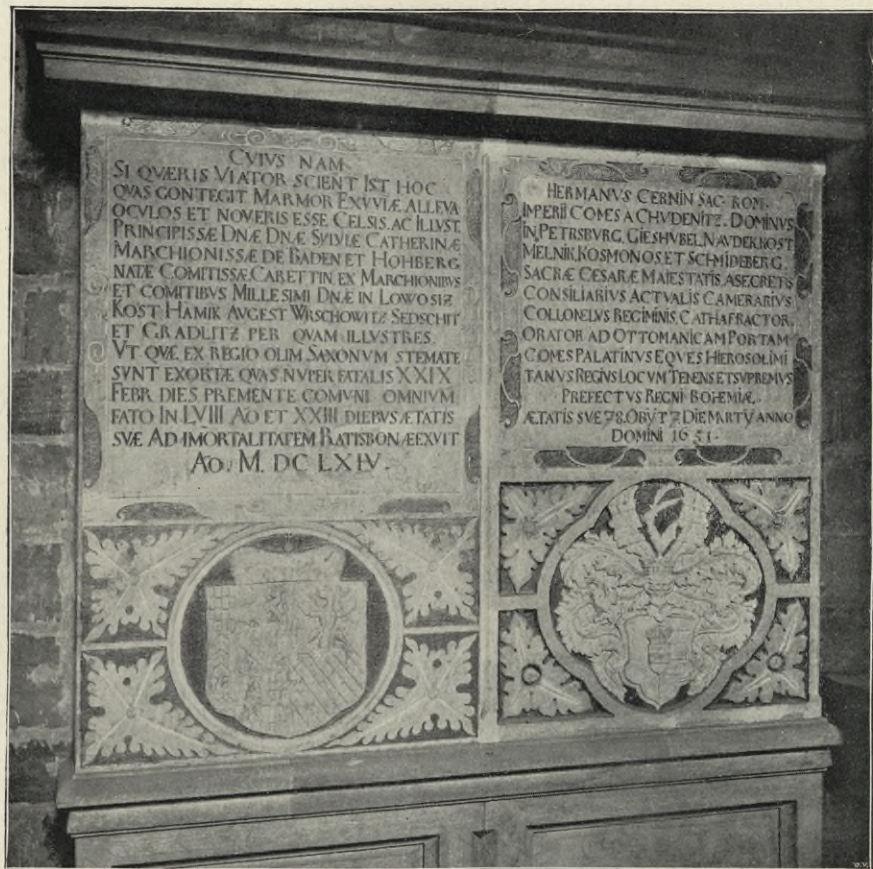 CVIVS NAM
SI QVÆRIS VIATOR SCIENT IST HOC
QVAS CONTEGIT MARMOR EXVVIÆ. ALLEVA
OCVLOS ET NOVERIS ESSE CELSIS. AC ILLVST.
PRINCIPISSÆ DNÆ DNÆ SYLVIÆ CATHERINÆ
MARCHIONISSÆ DE BADEN ET HOHBERG
NATÆ COMITISSÆ. CARETTIN EX MARCHIONIBVS
ET COMITIBVS MILLESIMI DNÆ IN LOWOSIZ
KOST HAMIK AVGEST WRSCHOWITZ SEDSCHIT
ET GRADLITZ PER QVAM ILLVSTRES.
VT QVÆ EX REGIO OLIM SAXONVM STEMATE
SVNT EXORTÆ QVAS NVPER FATALIS XXIX
FEBR DIES PREMENTE COMVNI OMNIVM
FATO IN LVIII AÕ ET XXIII DIEBVS ÆTATIS
SVÆ AD IMORTALITATEM RATISBONÆ EXVIT
AÕ. M. DC LXIV.
HERMANVS CERNIN SAC. ROM.
IMPERII COMES A CHVDENITZ. DOMINVS
IN PETRSBVRG, GIESHVBEL, NAVDEK KOST
MELNIK, KOSMONOS, ET SCHMIDEBERG.
SACRÆ CESARÆ MAIESTATIS. A SECRETIS
CONSILIARIVS ACTVALIS CAMERARIVS
COLLONELVS REGIMINIS, CATHAFRACTOR,
ORATOR AD OTTOMANICAM PORTAM
COMES PALATINVS EQVES HIEROSOLIMI
TANVS REGIVS LOCVM TENENS ET SVPREMVS
PREFECTVS REGNI BOHEMIÆ.
ÆTATIS SVE 78. OBŸT 7 DIE MARTŸ ANNO
DOMINI 1651.